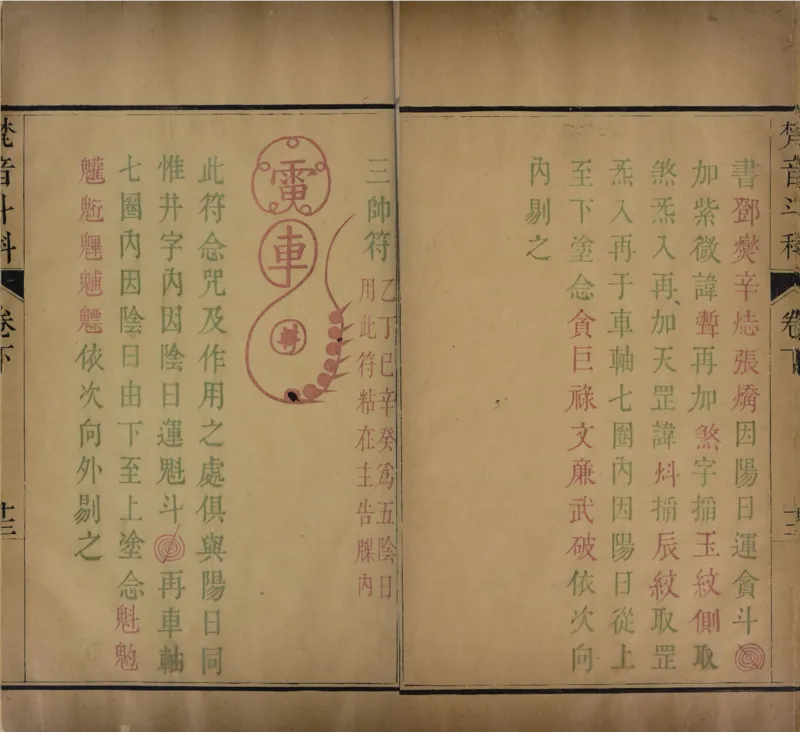 梵音斗科 卷下 十三
書鄧燮辛㷓張燆因陽日運貪斗
加紫微諱㬱再加煞字搯玉紋側取
煞炁入再加天罡諱㪺搯辰紋取罡
炁入再于車軸七圈內因陽日從上
至下塗念貪巨祿文廉武破依次向
內剔之
三帥符
乙丁巳辛癸爲五陰日
用此符粘在主告牒內
雷
車
此符念咒及作用之處俱與陽日同
惟井字內因陰日運魁斗再車軸
七圈內因陰日由下至上塗念魁䰢
䰡魒依次向外剔之
梵音斗科 卷下 十三